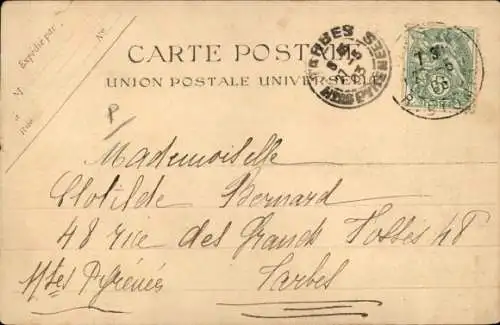 Expédié par
No
CARTE POSTALE
UNION POSTALE UNIVERSELLE
TARBES
HTES PYRENEES
Mademoiselle
Clotilde Bernard
48 rue des Grands Fossés 48
Htes Pyrénées Tarbes